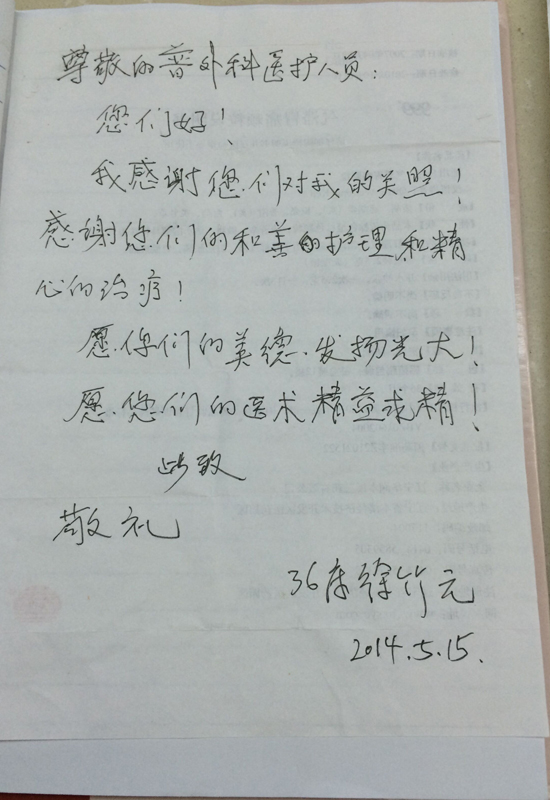 尊敬的普外科医护人员:
您们好!
我感谢您们对我的关照!
感谢您们的和善的护理和精
心的治疗!
愿你们的美德.发扬光大!
愿.您们的医术精益求精!
此致
敬礼
36床徐竹元
2014.5.15.